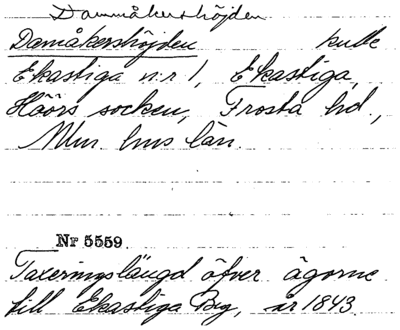 Dammåkershöjden
Damåkershöjden kulle
Ekastiga n:r 1, Ekastiga,
Höörs socken, Frosta hd.,
Mlm. hus län.
Nr 5559
Taxeringslängd öfver ägorne
till Ekastiga By, år 1843.